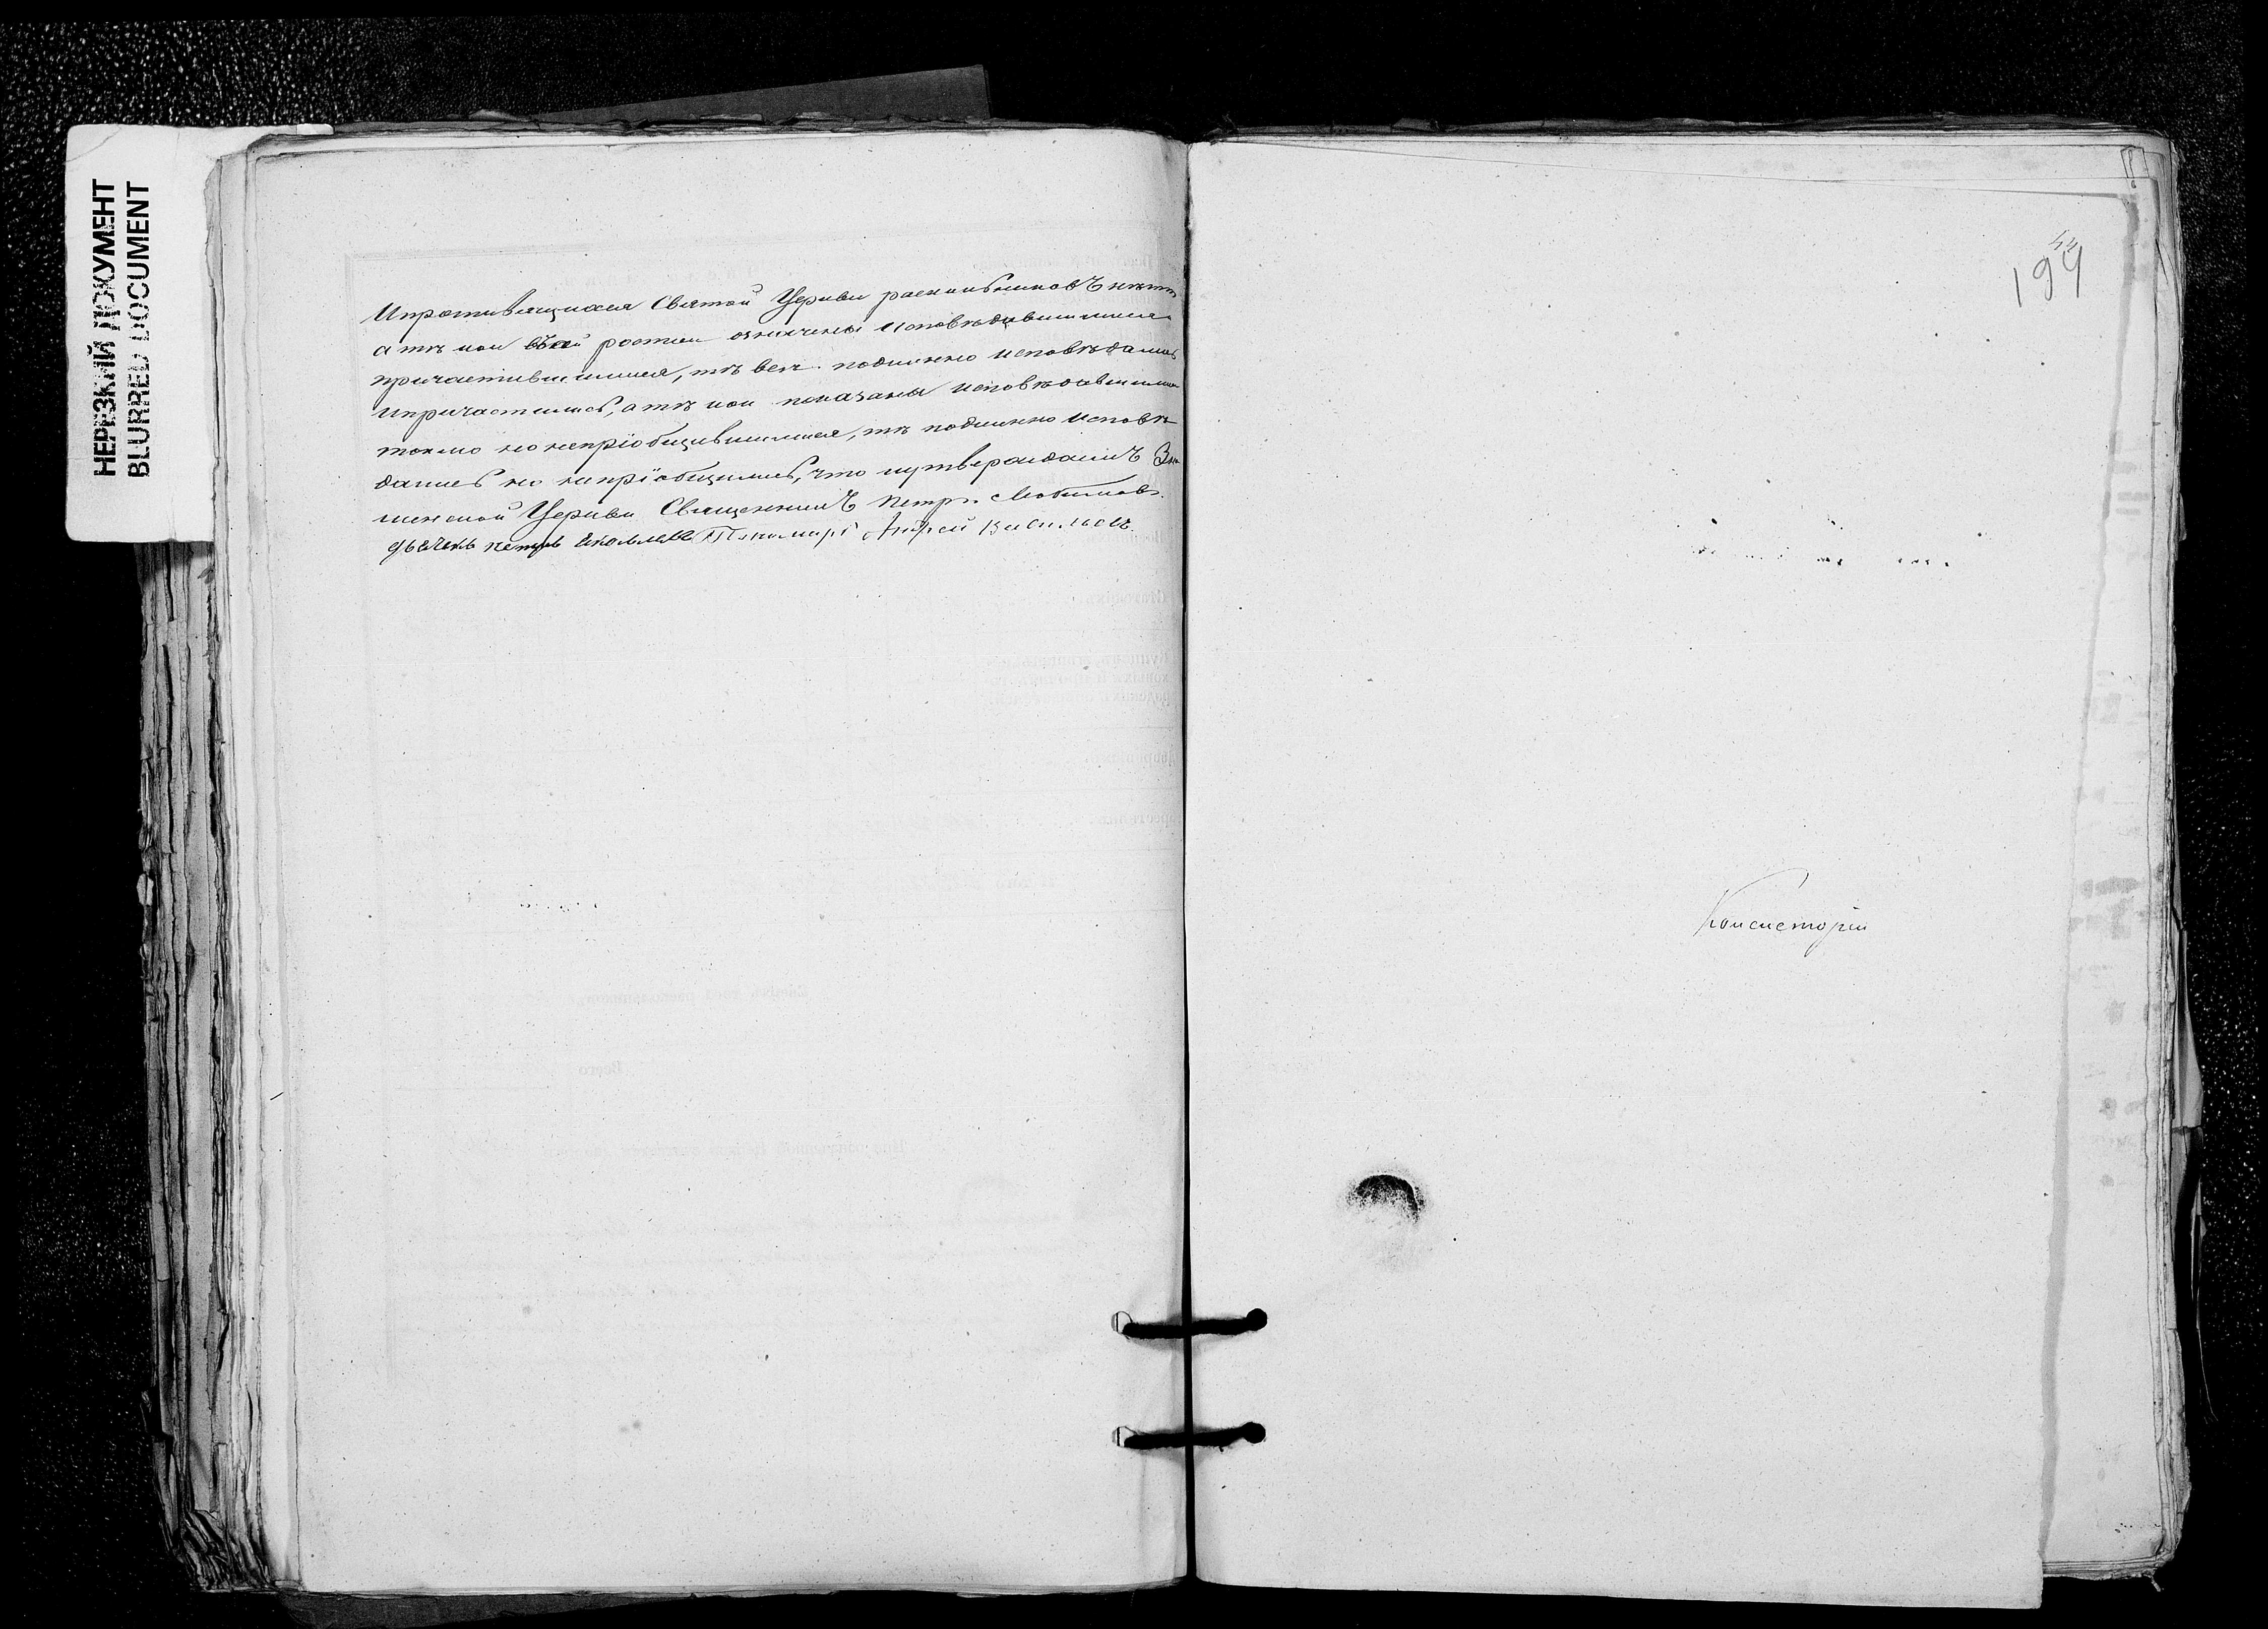 НЕРЕЗКИЙ ДОКУМЕНТ
BLURRED DOCUMENT
Ипротивящихся Святой Церкви раскольниковъ нѣтъ
а тѣ кои въ сей росписи означены исповѣдавшимися
причастившимися, тѣ всѣ подлинно исповѣдались
ипричастились, а тѣ кои показаны исповѣдавшимися
токмо но неприобщившимися, тѣ подлинно исповѣ
дались но неприобщились, что иутверждаемъ Зна
менской Церкви Священникъ Петръ Любимовъ.
Дьячекъ Петръ Яковлевъ Пономарь Андрей Васильевъ
194
Консисторіи